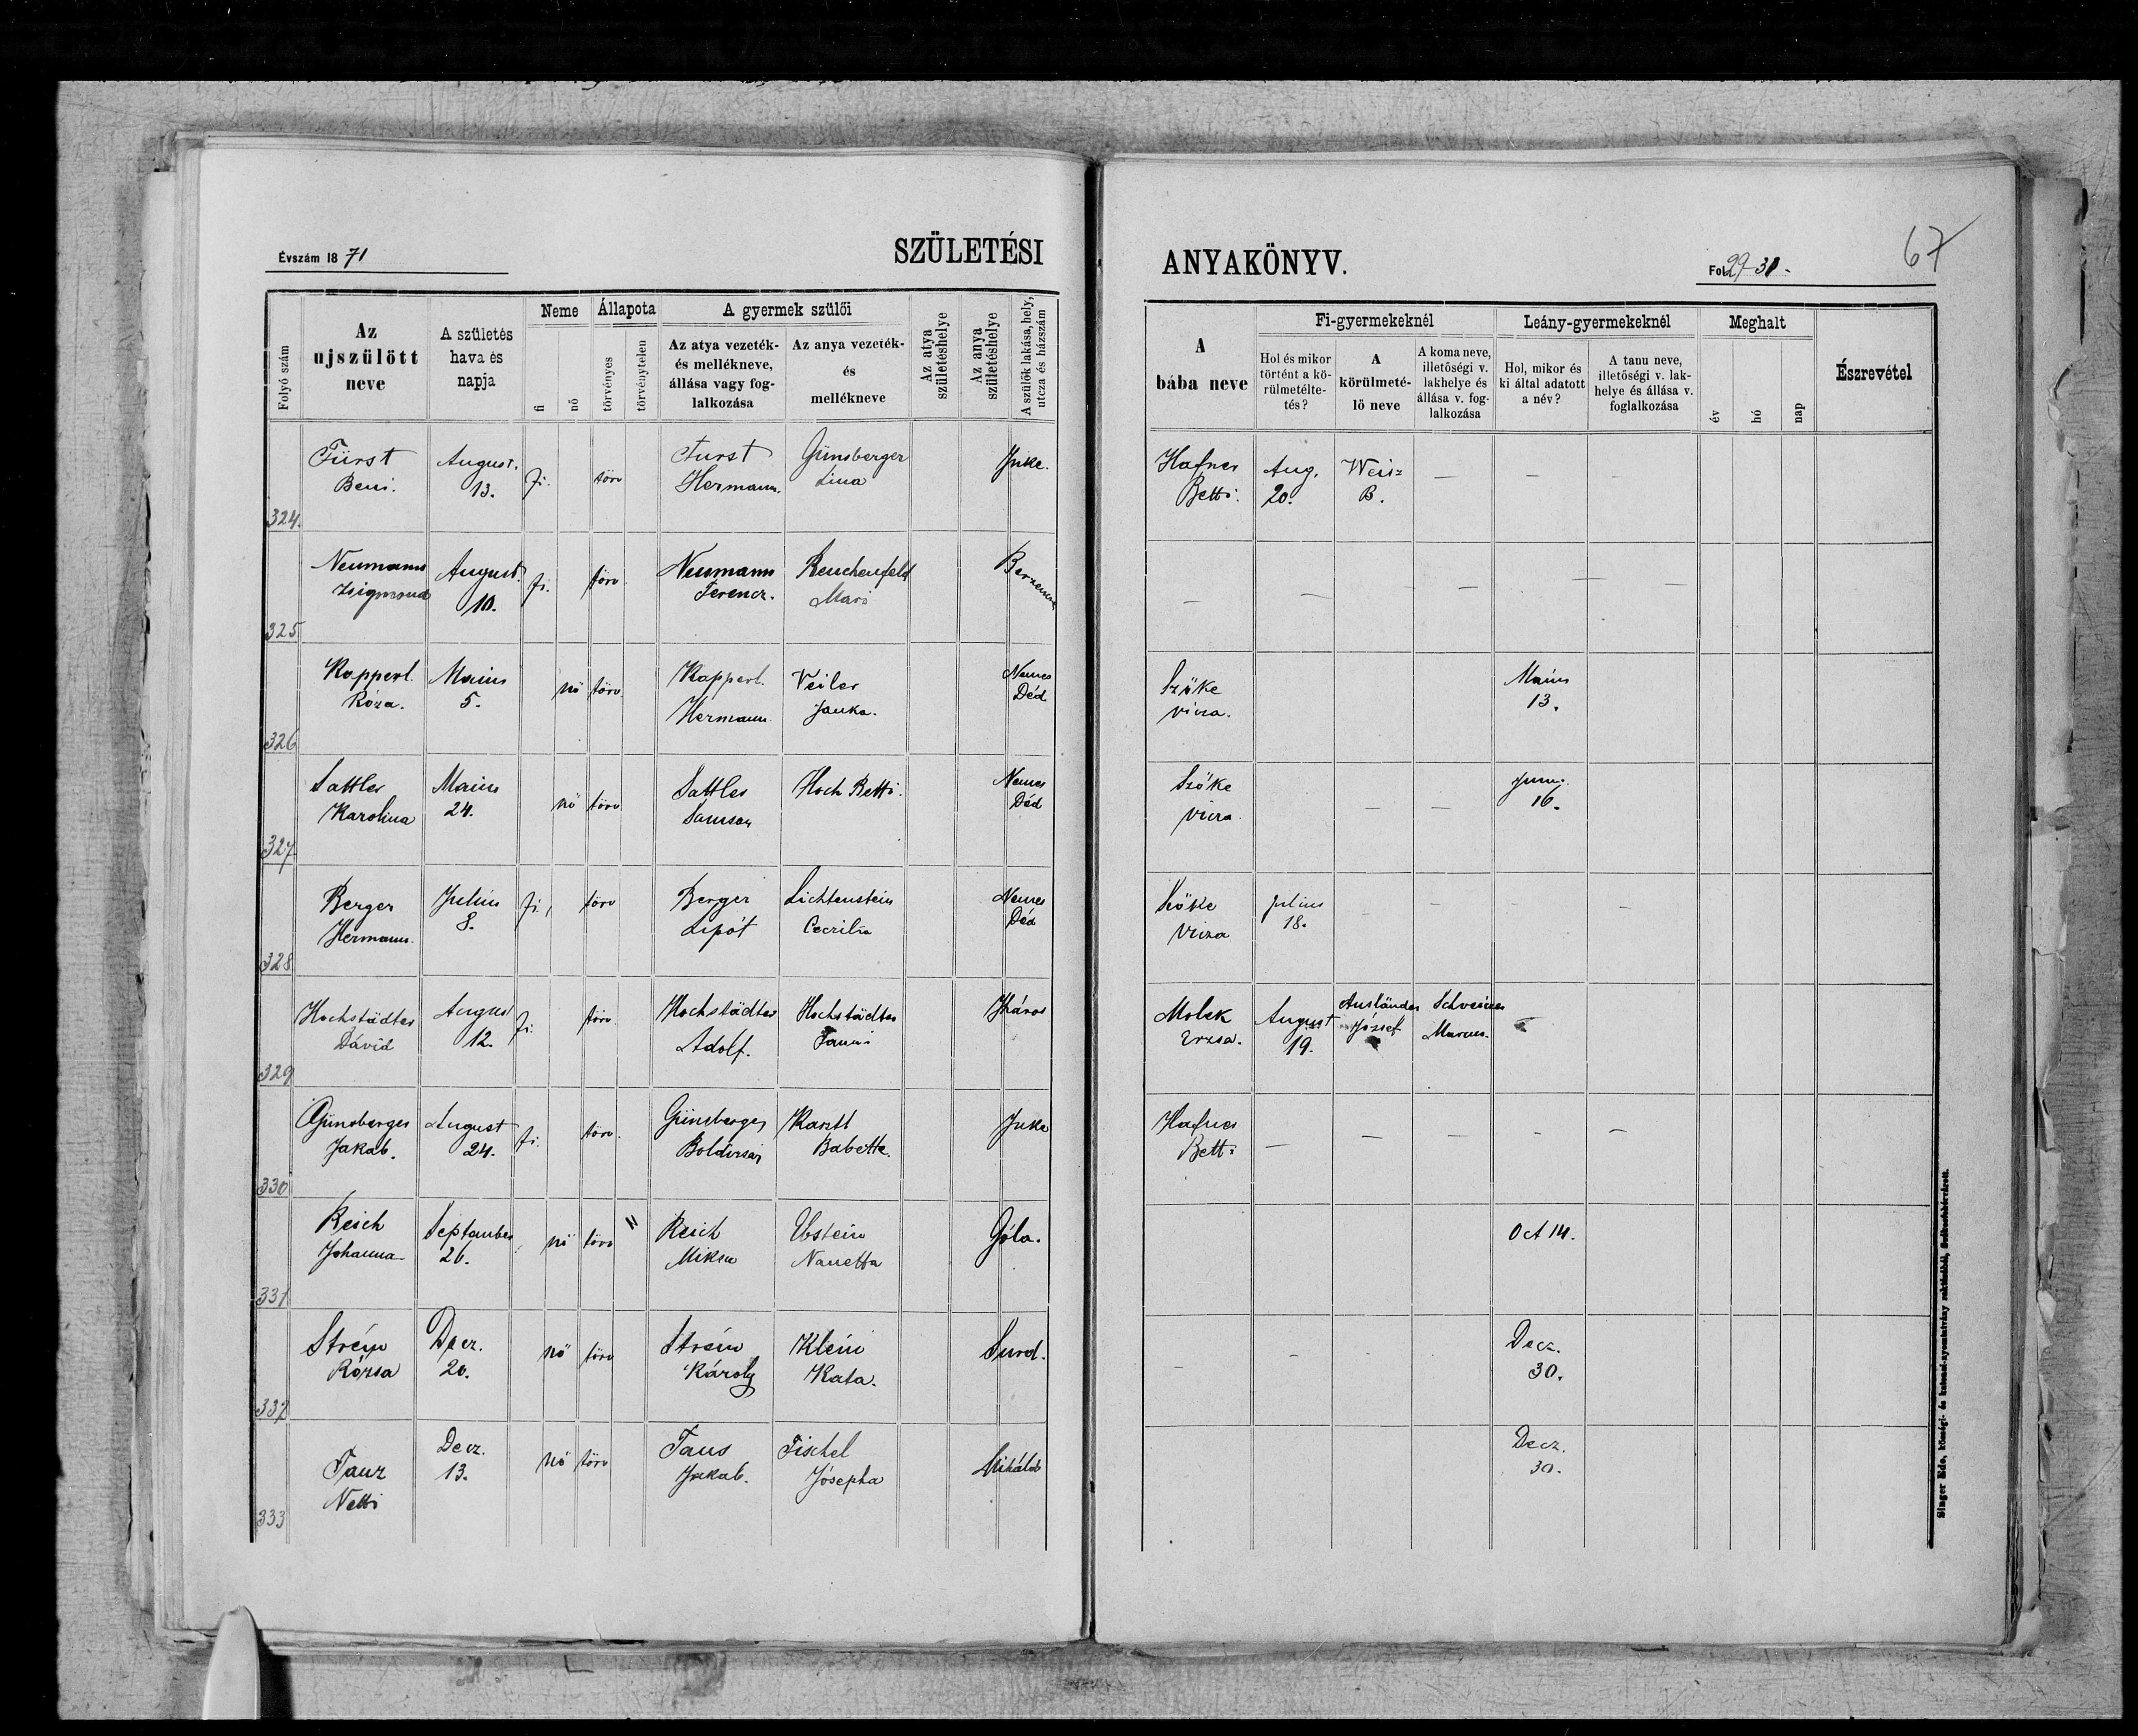 Évszám 1871
SZÜLETÉSI
ANYAKÖNYV.
Fol. 29-30.
67
Folyó szám
Az ujszülött neve
A születés hava és napja
Neme
fi
nő
Állapota
törvényes
törvénytelen
A gyermek szülői
Az atya vezeték- és mellékneve, állása vagy foglalkozása
Az anya vezeték- és mellékneve
Az atya születéshelye
Az anya születéshelye
A szülők lakása, hely, utcza és házszám
A bába neve
Fi-gyermekeknél
Hol és mikor történt a körülmetéltetés?
A körülmetélő neve
A koma neve, illetőségi v. lakhelye és állása v. foglalkozása
Leány-gyermekeknél
Hol, mikor és ki által adatott a név?
A tanu neve, illetőségi v. lakhelye és állása v. foglalkozása
Meghalt
év
hó
nap
Észrevétel
324. Fürst Beni. August. 13. fi. törv Furst Hermann. Günsberger Lina Inke. Hafner Betti. Aug. 20. Weisz B. — — -
325 Neumann Zsigmond August. 10. fi. törv. Neumann Ferencz. Reuchenfeld Mari — — — — — —
326 Kopperl. Róza. Maius 5. nö törv. Kopperl. Hermann Veiler Janka. Nemes Déd Szőke Maius 13.
327 Sattler Karolina Maius 24. nö törv. Sattler Samson Hoch Betti. Nemes Déd Szőke — — Juni. 16.
328 Berger Hermann. Julius 8. fi. törv Berger Lipót Lichtenstein Ceczilia Nemes Déd Szőke Julius 18. - - - -
329 Hochstädter Dávid August 12. fi. törv. Hochstädter Adolf. Hochstädter Fanni Iháros Molek Erzsa. August 19. Ausländer József Marcus.
330 Günsberger Jakab. August 24. fi. törv. Günsberger Babette. Inke Hafner Betti — — — — —
331 Reich Johanna September 26. nö törv " Reich Miksa Ebstein Nanetta Góla. Oct 14.
332 Strém Rózsa Decz. 20. nö törv Strém Károly Klein Kata. Surd. - - - Decz. 30.
333 Tauz Netti Decz. 13. nö törv Taus Jakab. Fischel Jósepha Miháld Decz. 30.